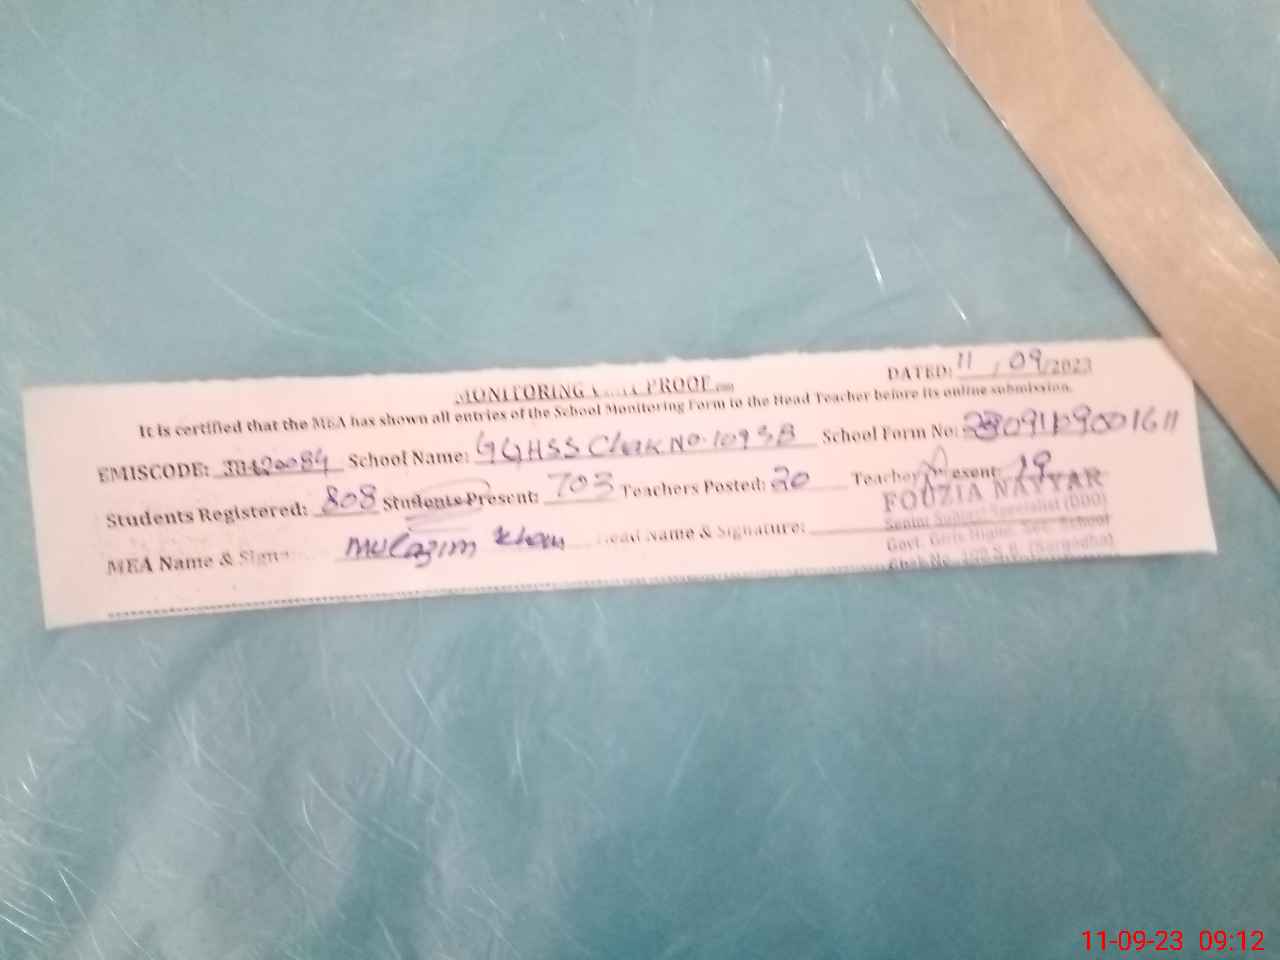 MONITORING PROOF
DATED: 11 / 09/2023
It is certified that the MEA has shown all entries of the School Monitoring Form to the Head Teacher before its online submission.
EMISCODE: 38420084 School Name: GGHSS Chak No. 109 SB School Form No:
Students Registered: 808 Students Present: 703 Teachers Posted: 20 Teacher 19
MEA Name & Mulazim Khan Head Name & Signature:
FOUZIA NAYYAR
Senior Subject Specialist (DDO)
Govt. Girls Higher Sec. School
Chak No. 109 S.B. (Sargodha)
11-09-23 09:12